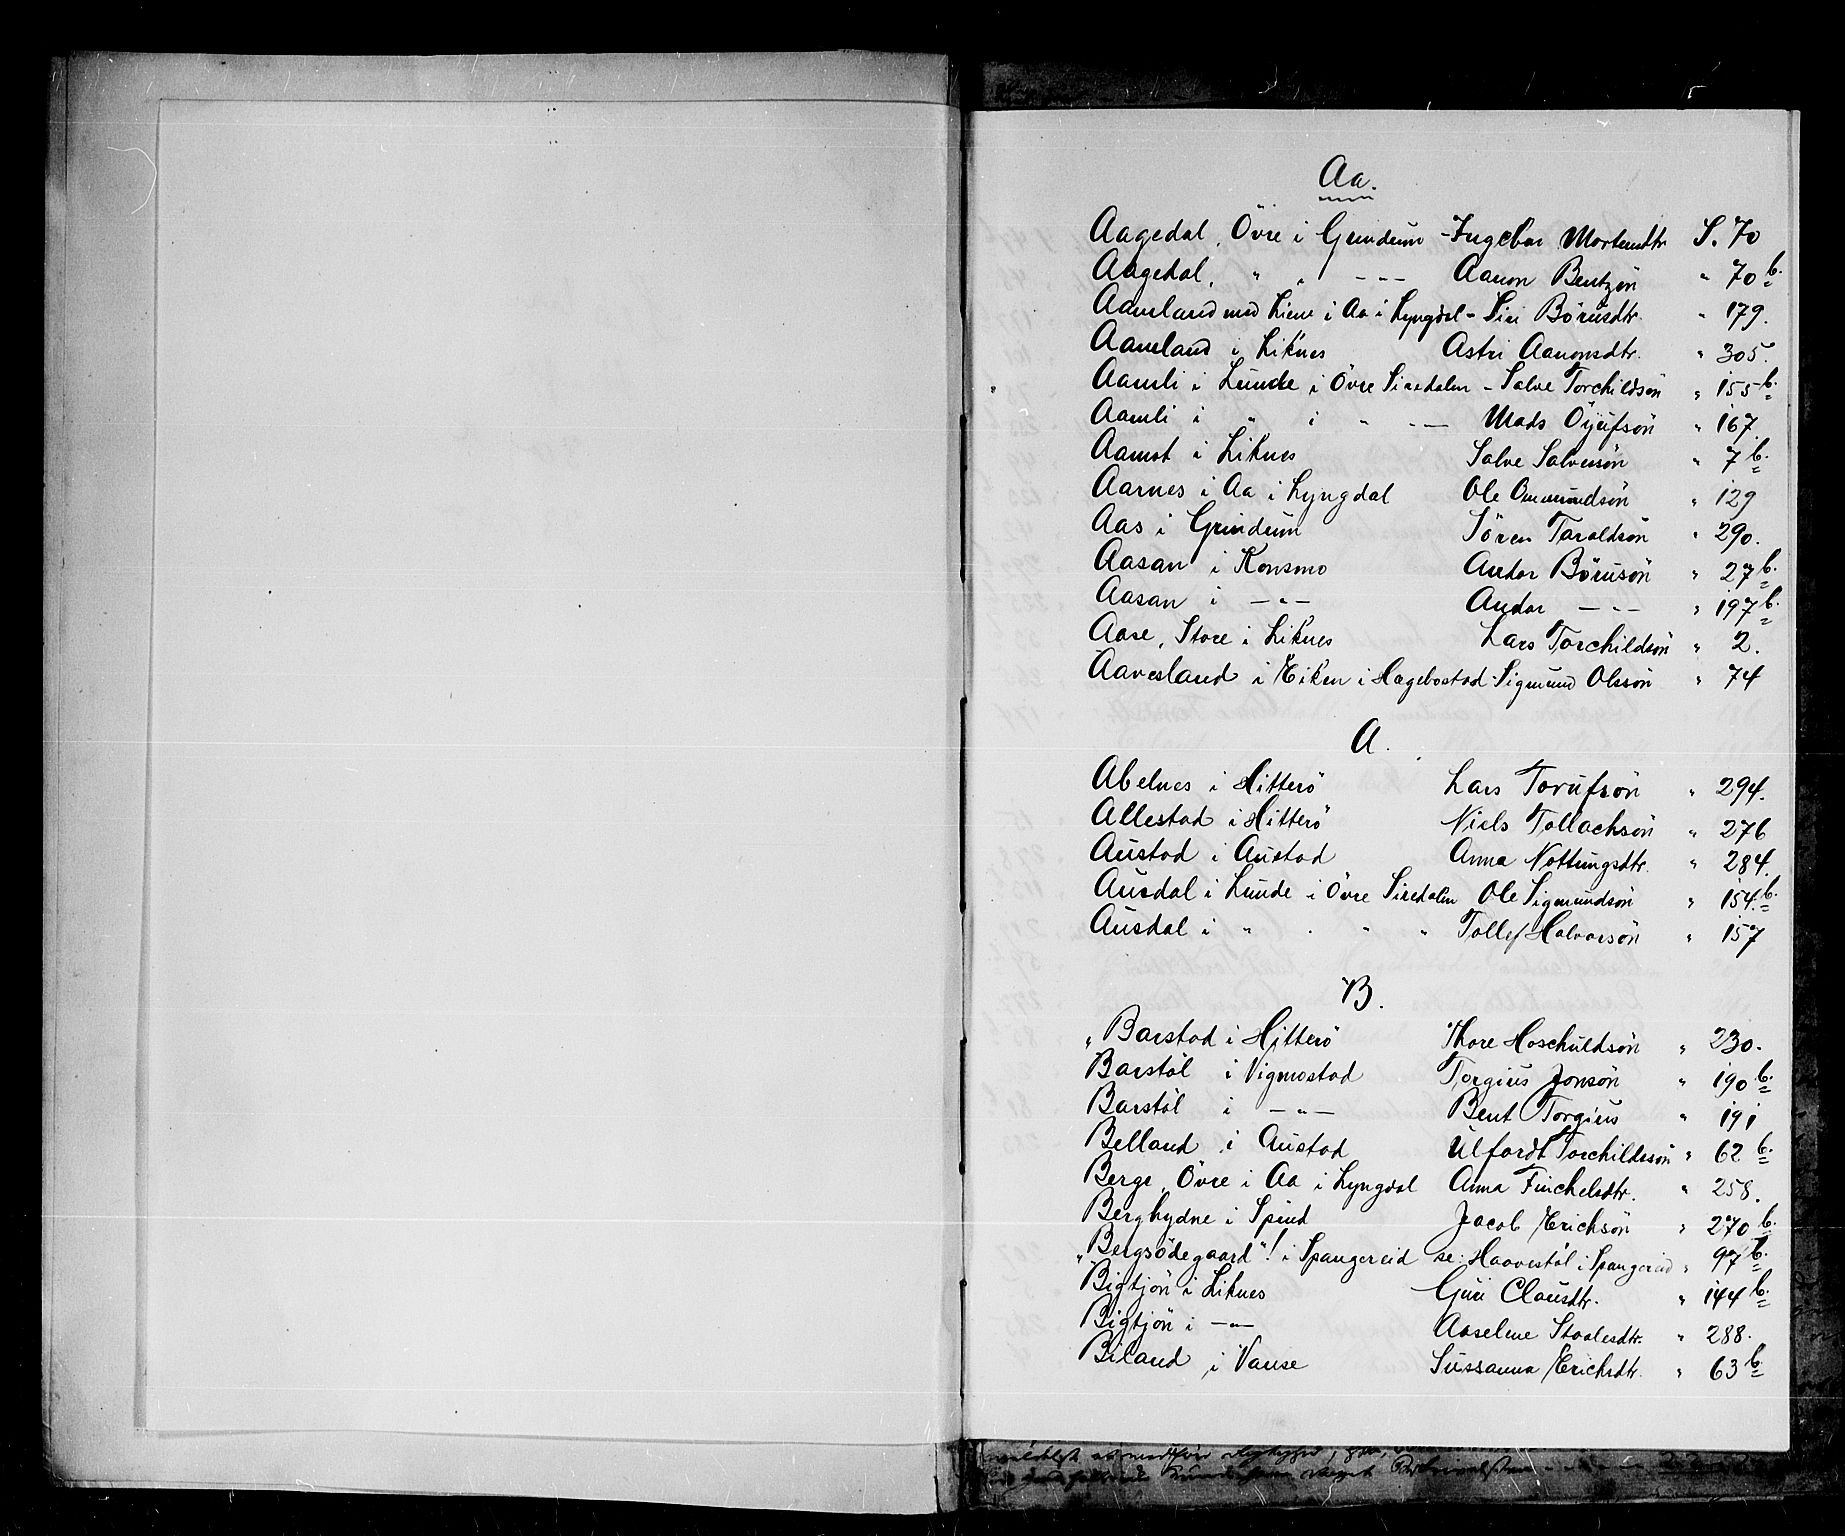 Aa.
Aagedal, Övre i Grindum - Ingebor Mortensdtr. S. 70
Aagedal, " " - - - Aanon Bentzön " 70 b.
Aamland med Liene i Aa i Lyngdal - Siri Börüsdtr. " 179.
Aamland i Liknes Astri Aanonsdtr. " 305.
Aamli i Lunde i Övre Siredalen - Salve Torchildsön " 155 b.
Aamli i " i " - - Mads Öyüfsön " 167.
Aamot i Liknes Salve Salvesön " 7 b.
Aarnes i Aa i Lyngdal Ole Ommundsön " 129
Aas i Grindum Sören Taraldsön " 290.
Aasan i Konsmo Andor Börüsön " 27 b.
Aasan i - " - Andor - " - " 197 b.
Aase, Store i Liknes Lars Torchildsön " 2.
Aavesland i Eiken i Hægebostad - Sigmund Olssön " 74
A.
Abelnes i Hitterö Lars Torüfsön " 294.
Allestad i Hitterö Niels Tollachsön " 276
Austad i Austad Anna Nottungsdtr. " 284.
Ausdal i Lunde i Övre Siredalen Ole Sigmundsön " 154. b.
Ausdal i " . " " Tollef Halvorsön " 157
B.
"Barstad i Hitterö Thore Hoschuldsön " 230.
Barstöl i Vigmostad Torgius Jonsön " 190 b.
Barstöl i - " - Bent Torgius " 191
Belland i Austad Ulfordt Torchildssön " 62 b.
Berge, Övre i Aa i Lyngdal Anna Finchelsdtr. " 258.
Berghydne i Spind Jacob Erichsön " 270 b.
"Bergsödegaard"! i Spangereid se: Haavestöl i Spangereid " 97 b.
Bigtjön i Liknes Guri Clausdtr. " 144 b.
Bigtjön i - " - Aaselene Staalesdtr. " 288.
Biland i Vanse Sussanna Erichsdtr. " 63 b.